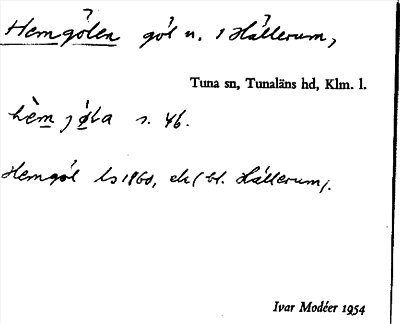 Hemgölen göl n. i Hällerum,
Tuna sn, Tunaläns hd, Klm. l.
hèm jö́la s. 46.
Hemgöl Ls 1860, ek (bl. Hällerum).
Ivar Modéer 1954